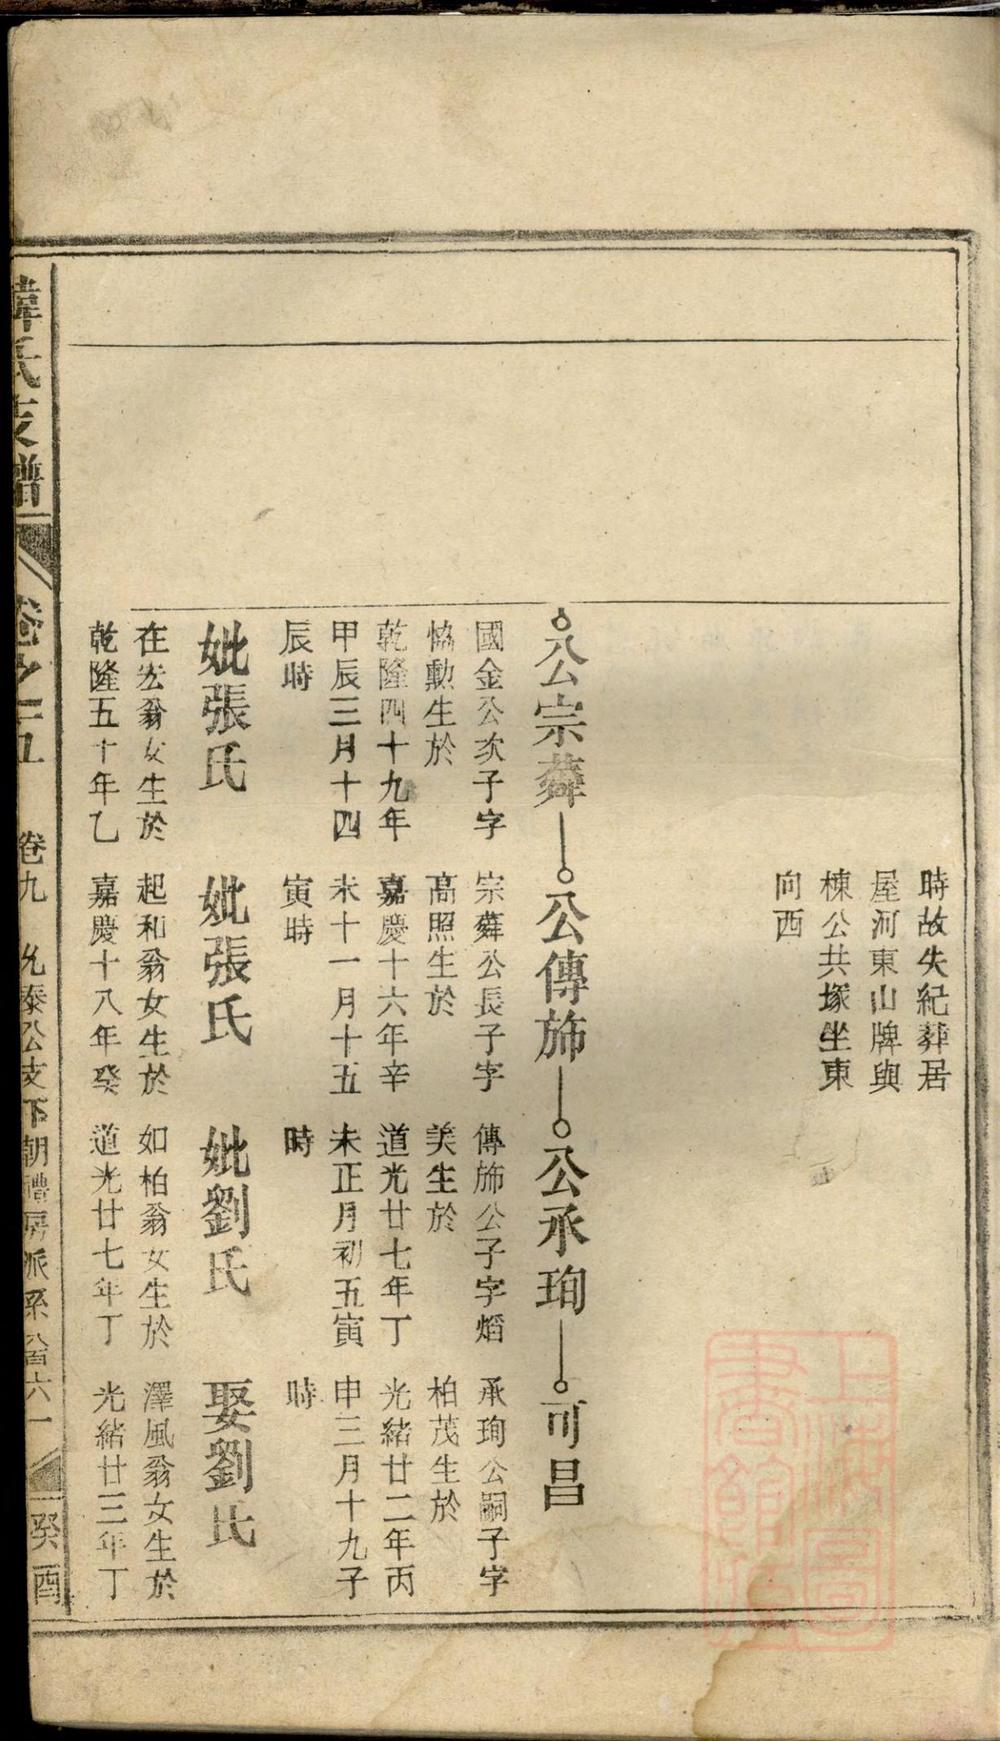 時故失紀葬居
屋河東山牌與
棟公共塚坐東
向西
公宗蕣
國金公次子字
恊勳生於
乾隆四十九年
甲辰三月十四
辰時
妣張氏
在宏翁女生於
乾隆五十年乙
公傳斾
宗蕣公長子字
高照生於
嘉慶十六年辛
未十一月十五
寅時
妣張氏
起和翁女生於
嘉慶十八年癸
公承珣
傳斾公子字熖
美生於
道光廿七年丁
未正月初五寅
時
妣劉氏
如柏翁女生於
道光廿七年丁
可昌
承珣公嗣子字
柏茂生於
光緒廿二年丙
申三月十九子
時
娶劉氏
澤風翁女生於
光緒廿三年丁
氏支譜
卷之五
卷九
允泰公支下朝禮房派系
六一
癸酉
上海圖書館藏